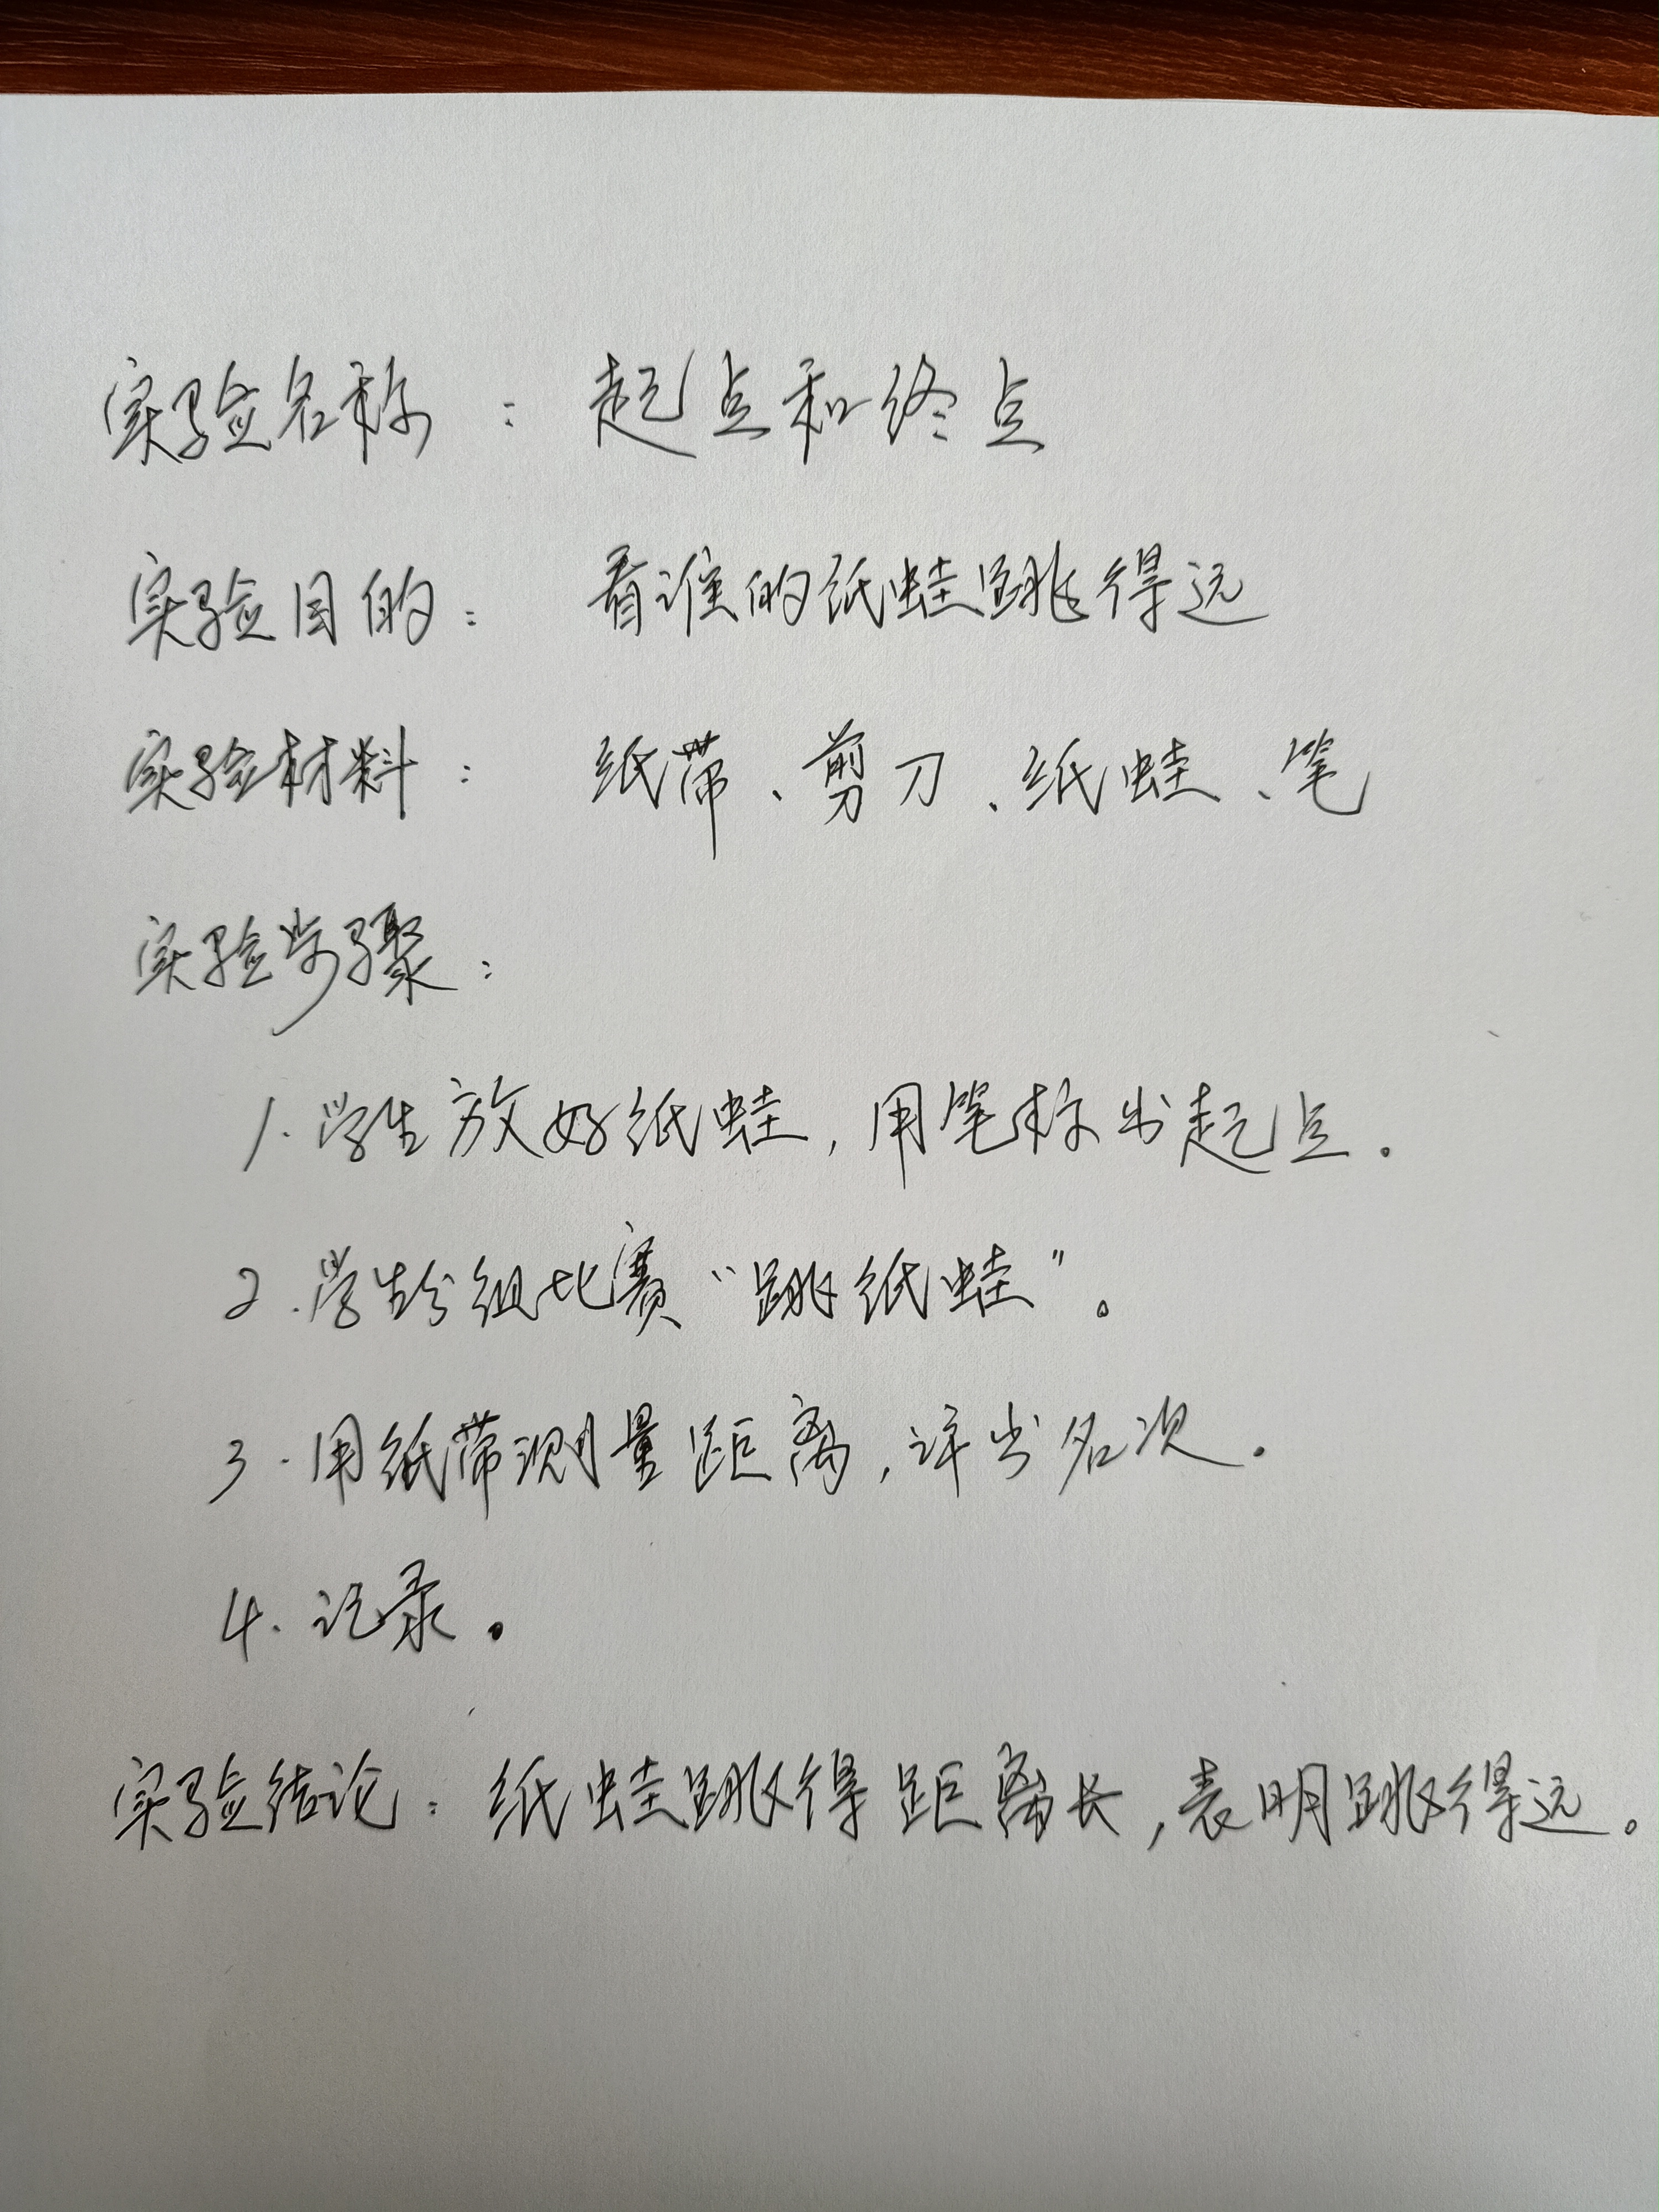 实验名称：起点和终点
实验目的：看谁的纸蛙跳得远
实验材料：纸带、剪刀、纸蛙、笔
实验步骤：
1.学生放好纸蛙，用笔标出起点.
2.学生分组比赛“跳纸蛙”。
3.用纸带测量距离，评出名次.
4.记录.
实验结论：纸蛙跳得距离长，表明跳得远。